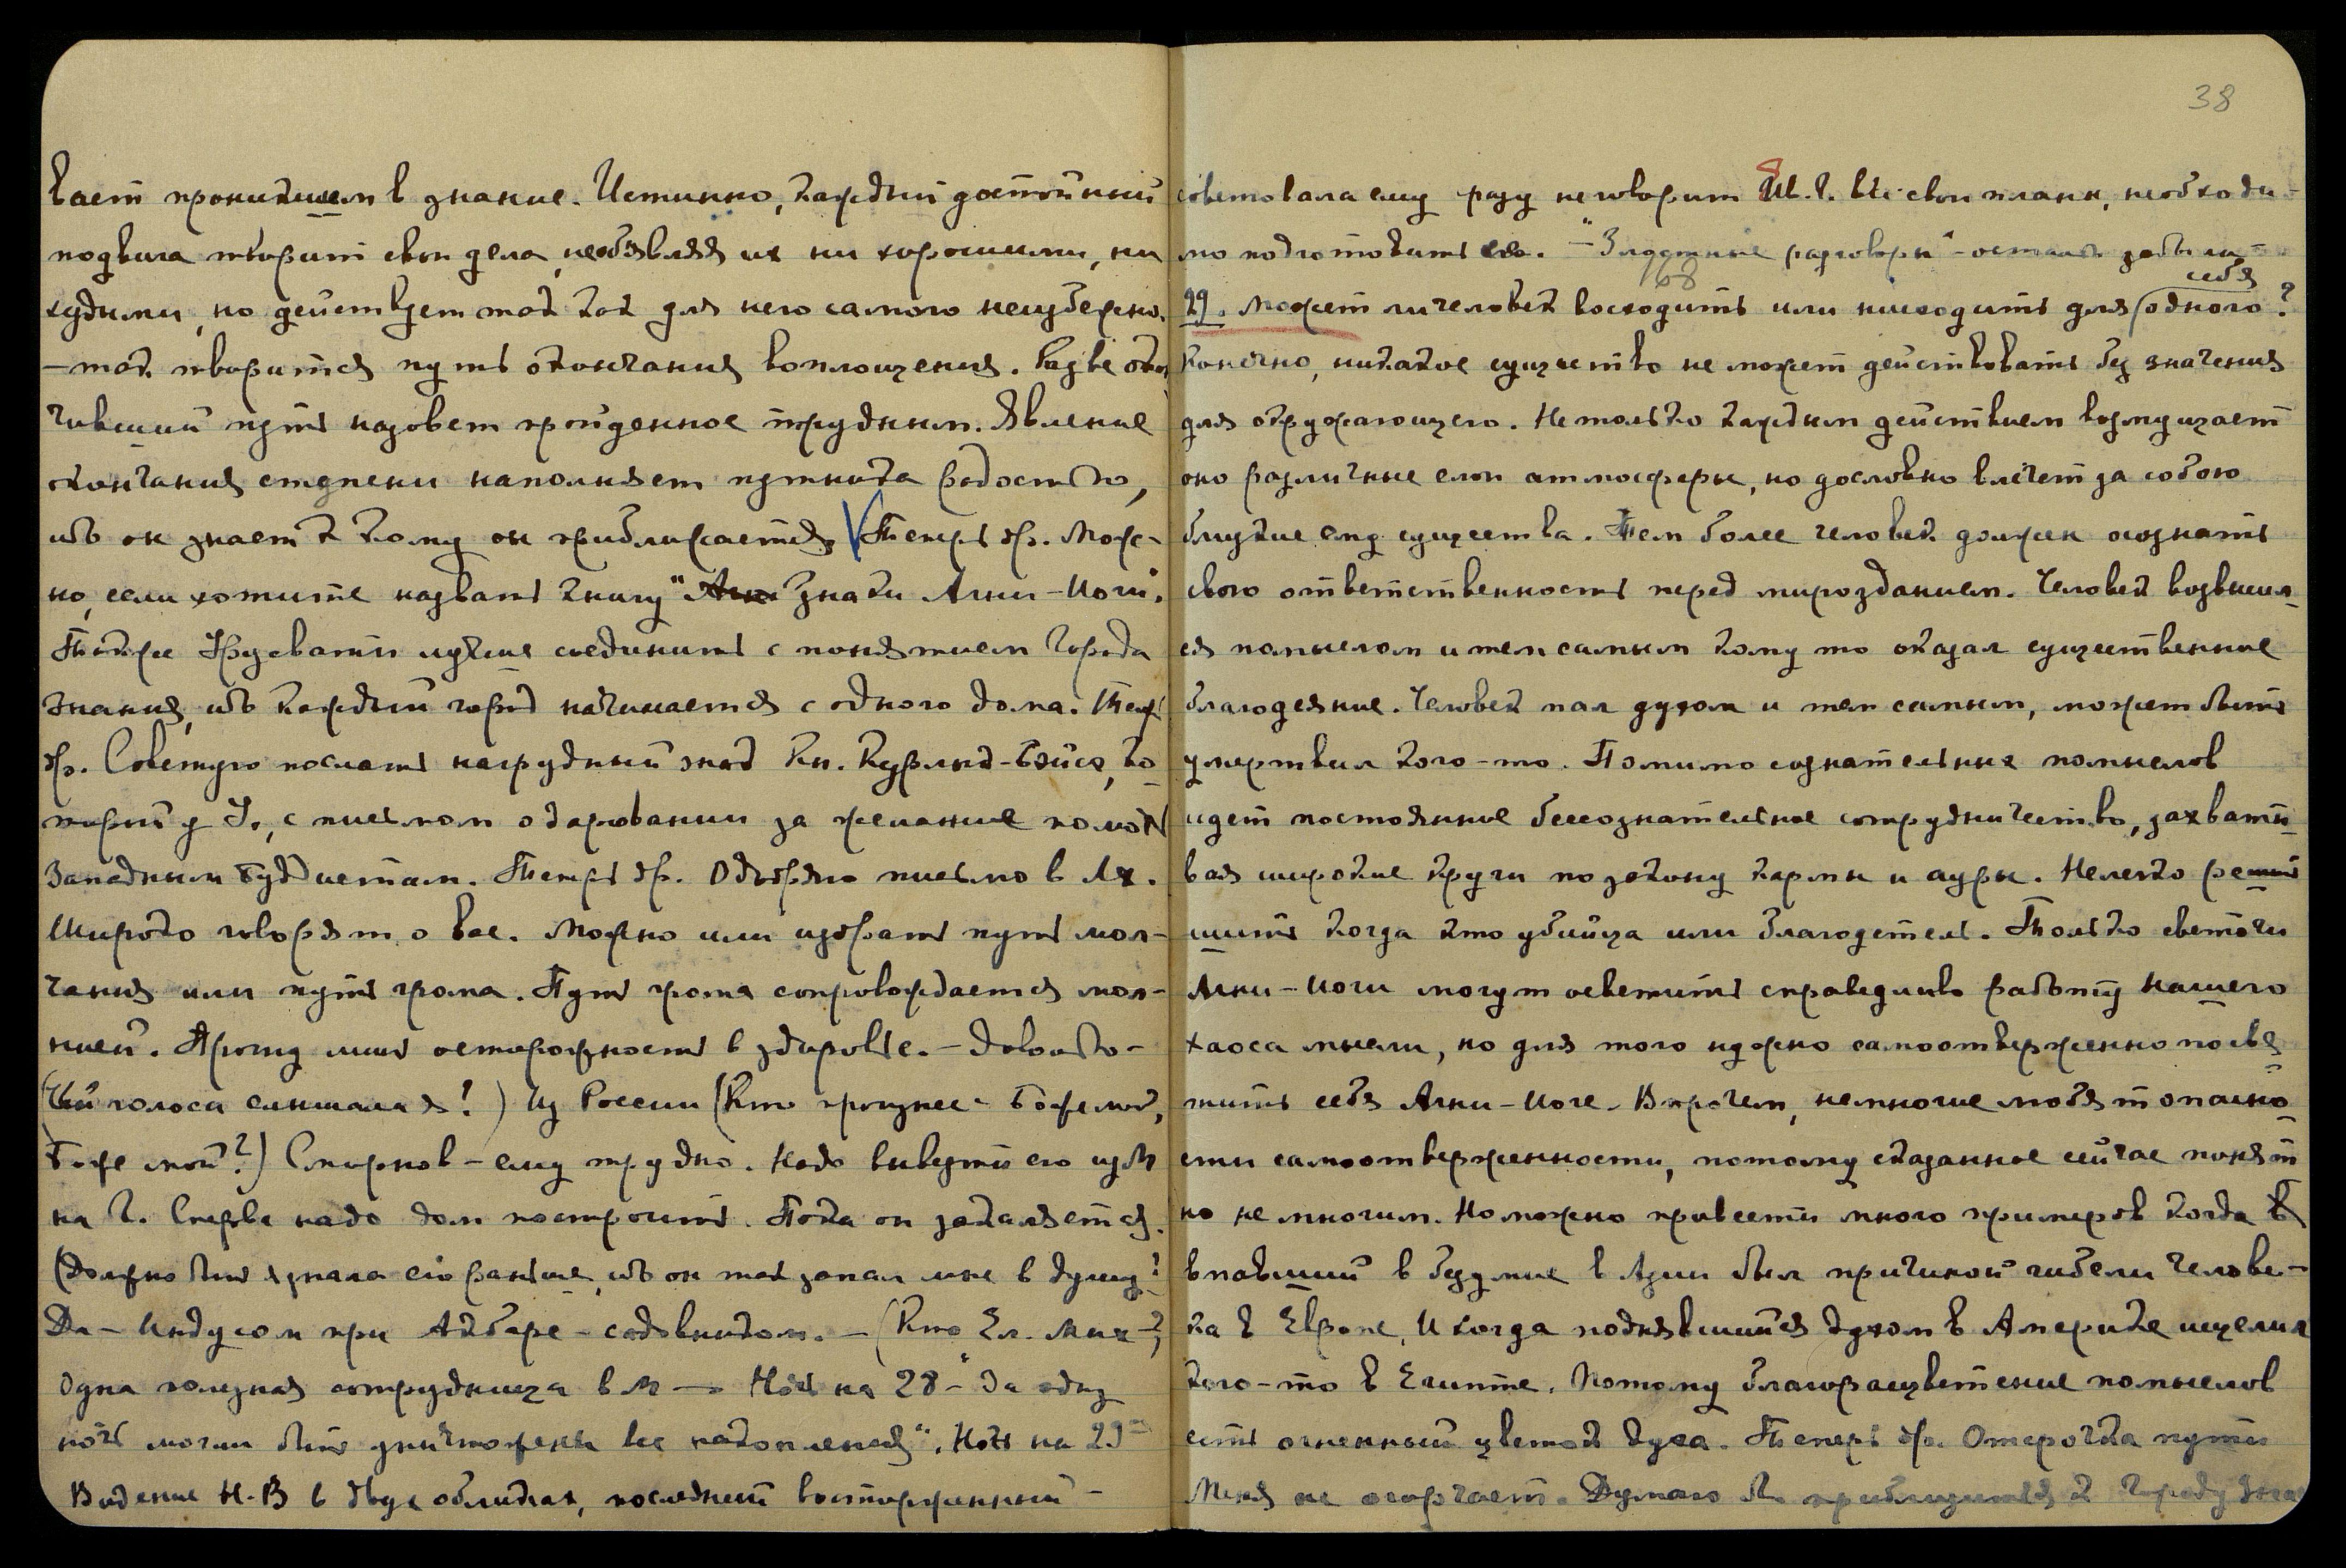 вает проникшем в знание. Истинно, каждый достойный
подвига творит свои дела, необъявляя их ни хорошими, ни
худыми, но действует так как для него самого неизбежно.
— так. творится путь окончания воплощения. Разве окон
чивший путь назовет пройденное трудным. Явление
окончания ступени наполняет путника радостью,
ибо он знает к кому он приближается. Теперь др. Мож-
но, если хотите назвать книгу "Знаки Агни-Йоги".
Также Урусвати лучше соединить с понятием Города
Знания, ибо каждый город начинается с одного дома. Теп
др. Советую послать нагрудный знак Кн. ко-
торый у У., с письмом о даровании за желание помочь
Западным Буддистам. Теперь др. Одобряю письмо в Лх.
Широко говорят о вас. Можно или избрать путь мол-
чания или путь грома. Путь грома сопровождается мол-
нией. Прошу лишь осторожность в здоровье. — Довольно —
(Чьи голоса слышала я!) Из России (Кто произнес - Боже мой,
Боже мой?) Смирнов — ему трудно. Надо вывезти его из М
на Г. Сперва надо дом построить. Пока он закаляется.
(Должно быть я знала его раньше, ибо он так запал мне в душу?
Да — Индусом при Акбаре — садовником. — (Кто Ел. Мих —?
Одна полезная сотрудница в М — Ночь на 28 — "За одну
ночь могли быть уничтожены все накопления". Ночь на 29
Видение Н.В в двух обликах, последний восторженный —
38
советовала ему разу не говорит Шв. Г. все свои планы, необходи-
мо подготовить его. — разговоры" —
68
29. Может ли человек восходить или нисходить для себя одного?
Конечно, никакое существо не может действовать без значения
для окружающего. Не только каждым действием возмущает
оно различные слои атмосферы, но дословно влечет за собою
близкие ему существа. Тем более человек должен осознать
свою ответственность перед мирозданием. Человек возвысил-
ся помыслом и тем самым кому то оказал существенное
благодеяние. Человек пал духом и тем самым, может быть
умертвил кого-то. Помимо сознательных помыслов
идет постоянное бессознательное сотрудничество, захваты-
вая широкие круги по закону кармы и ауры. Нелегко ре
шить когда кто убийца или благодетель. Только светочи
Агни-Йоги могут осветить справедливо работу нашего
хаоса мысли, но для того нужно самоотверженно посвя
тить себя Агни-Йоге. Впрочем, немногие любят опасно-
сти самоотверженности, потому сказанное сейчас понят
но не многим. Но можно привести много примеров когда
впавший в безумие в Азии был причиной гибели челове-
ка в Европе, И когда поднявшийся духом в Америке исцелил
кого-то в Египте. Потому благорасцветение помыслов
есть огненный цветок духа. Теперь др. Отсрочка пути
Меня не огорчает. Думаю бы приблизиться к Городу Зна